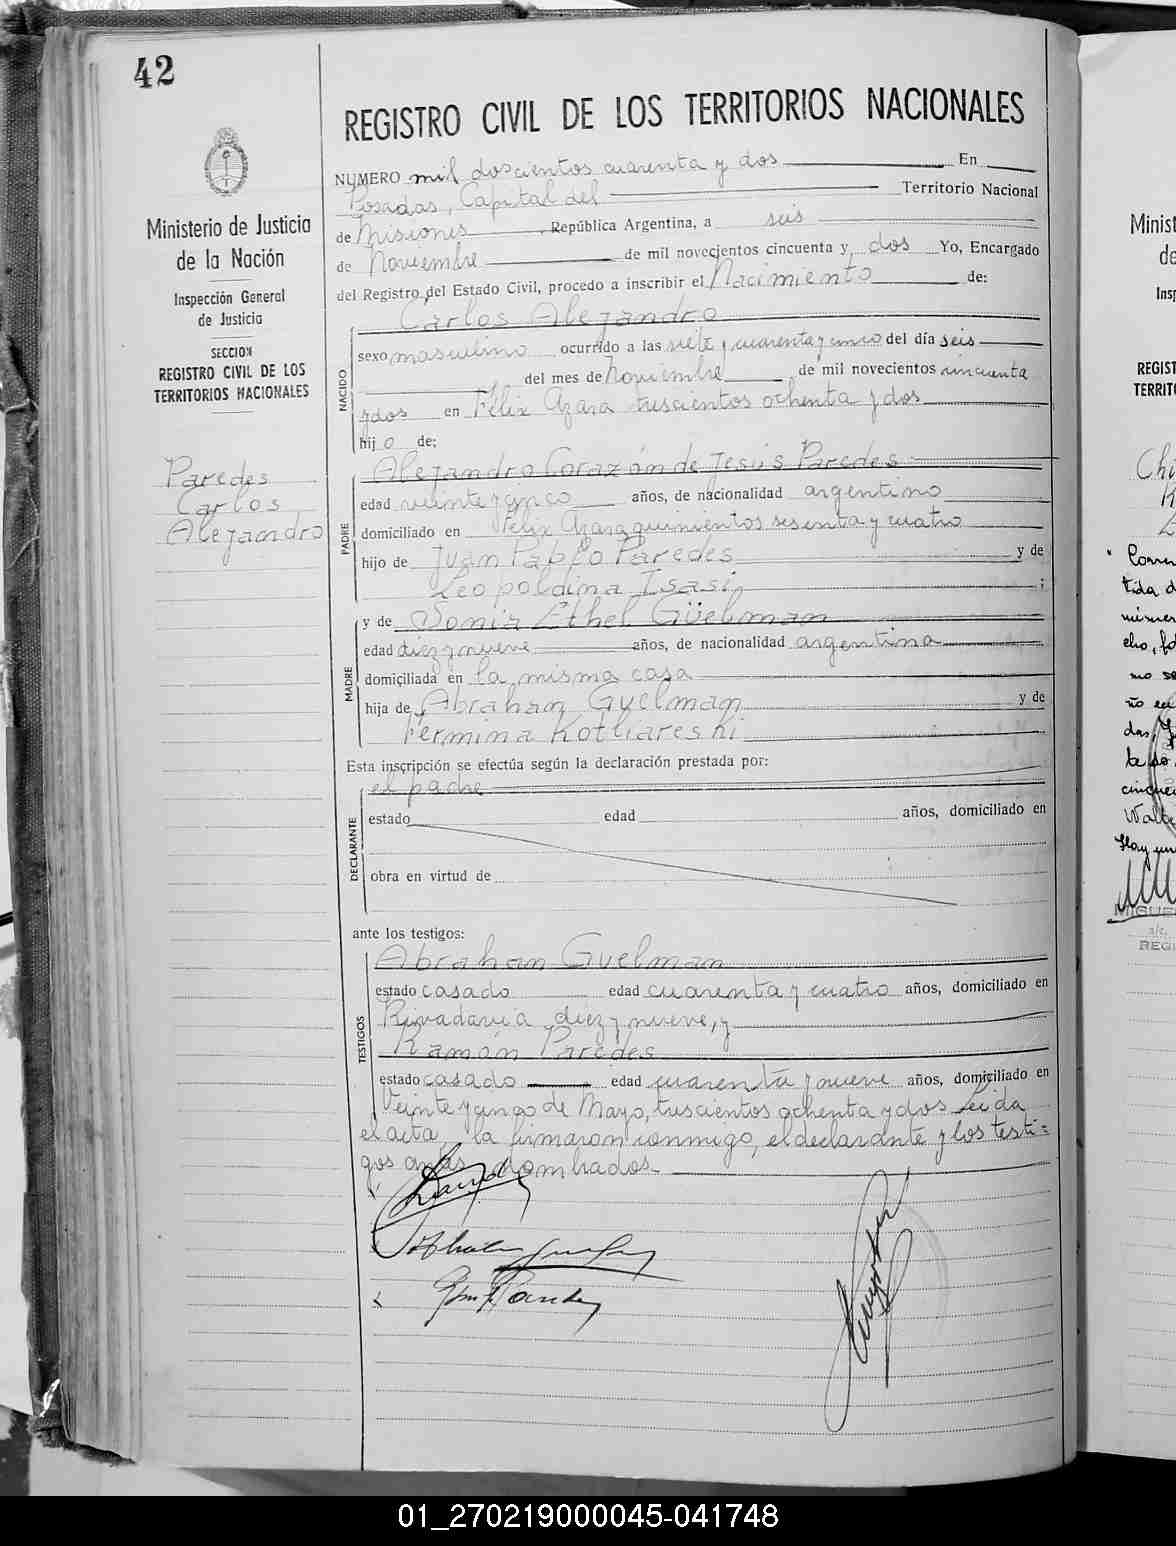 42
REGISTRO CIVIL DE LOS TERRITORIOS NACIONALES
Ministerio de Justicia
de la Nación
Inspección General
de Justicia
SECCION
REGISTRO CIVIL DE LOS
TERRITORIOS NACIONALES
Paredes
Carlos
Alejandro
NUMERO mil doscientos cuarenta y dos En
Posadas, Capital del Territorio Nacional
de Misiones, República Argentina, a seis
de Noviembre de mil novecientos cincuenta y dos Yo, Encargado
del Registro del Estado Civil, procedo a inscribir el Nacimiento de:
NACIDO
Carlos Alejandro
sexo masculino ocurrido a las siete y cuarenta y cinco del día seis
del mes de Noviembre de mil novecientos cincuenta
y dos en Félix Azara trescientos ochenta y dos
hijo de:
PADRE
Alejandro Corazón de Jesús Paredes
edad veinte y cinco años, de nacionalidad argentino
domiciliado en Félix Azara quinientos sesenta y cuatro
hijo de Juan Pablo Paredes y de
Leopoldina Isasi;
MADRE
y de Sonia Ethel Güelman
edad diez y nueve años, de nacionalidad argentina
domiciliada en la misma casa
hija de Abraham Guelman y de
Fermina Kotliareski
Esta inscripción se efectúa según la declaración prestada por:
DECLARANTE
el padre
estado edad años, domiciliado en
obra en virtud de
ante los testigos:
TESTIGOS
Abraham Guelman
estado casado edad cuarenta y cuatro años, domiciliado en
Rivadavia diez y nueve, y
Ramón Paredes
estado casado edad cuarenta y nueve años, domiciliado en
Veinte y cinco de Mayo, trescientos ochenta y dos Leida
el acta, la firmaron conmigo, el declarante y los testi=
gos antes nombrados
Minist
de
Insp
REGIST
TERRITO
Chi
tida d
REGI
01_270219000045-041748